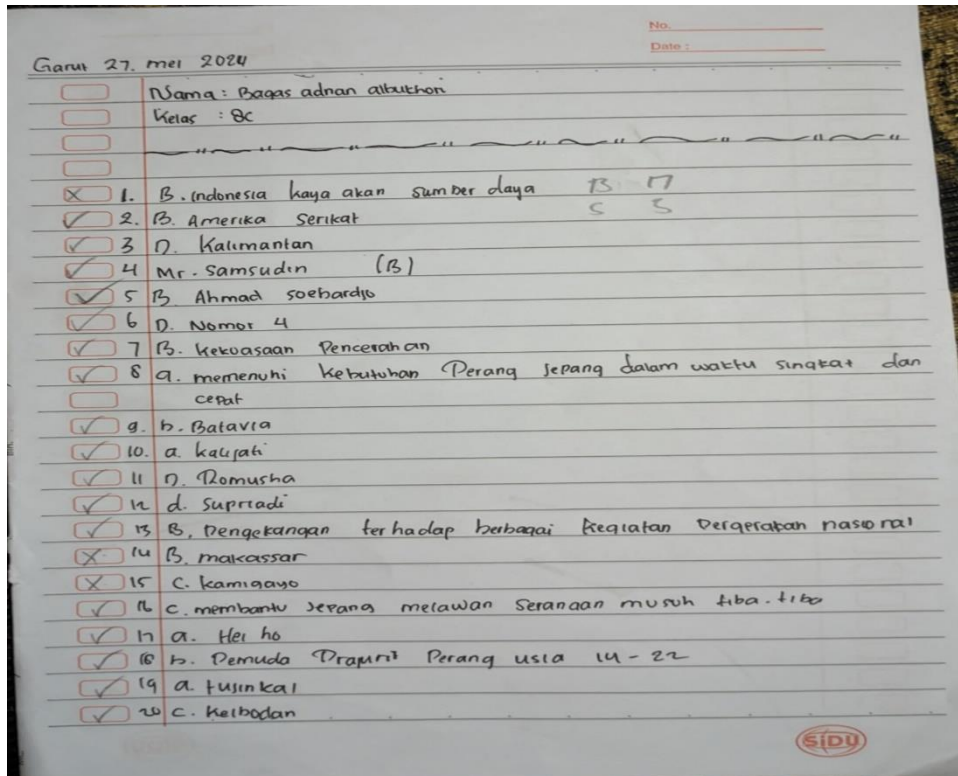 No.
Date :
Garut 27. mei 2024
Nama : Bagas adnan albukhori
Kelas : 8c
1. B. indonesia kaya akan sumber daya B 17
S 3
2. B. Amerika Serikat
3 D. Kalimantan
4 Mr. Samsudin (B)
5 B Ahmad soebardjo
6 D. Nomor 4
7 B. Kekuasaan Pencerahan
8 a. memenuhi kebutuhan Perang Jepang dalam waktu singkat dan
cepat
9. b. Batavia
10. a. kalijati
11 D. Romusha
12 d. Supriadi
13 B. Pengekangan terhadap berbagai kegiatan Pergerakan nasional
14 B. makassar
15 C. kamigayo
16 C. membantu Jepang melawan Serangan musuh tiba-tiba
17 a. Hei ho
18 b. Pemuda Prajurit Perang usia 14 - 22
19 a. tusinkal
20 C. Keibodan
SiDU